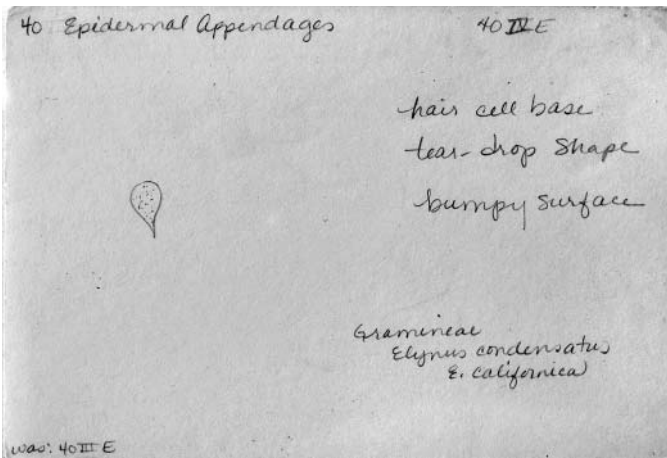 40 Epidermal Appendages 40 IV E
hair cell base
tear-drop shape
bumpy surface
Gramineae
Elymus condensatus
E. californica
was: 40 III E